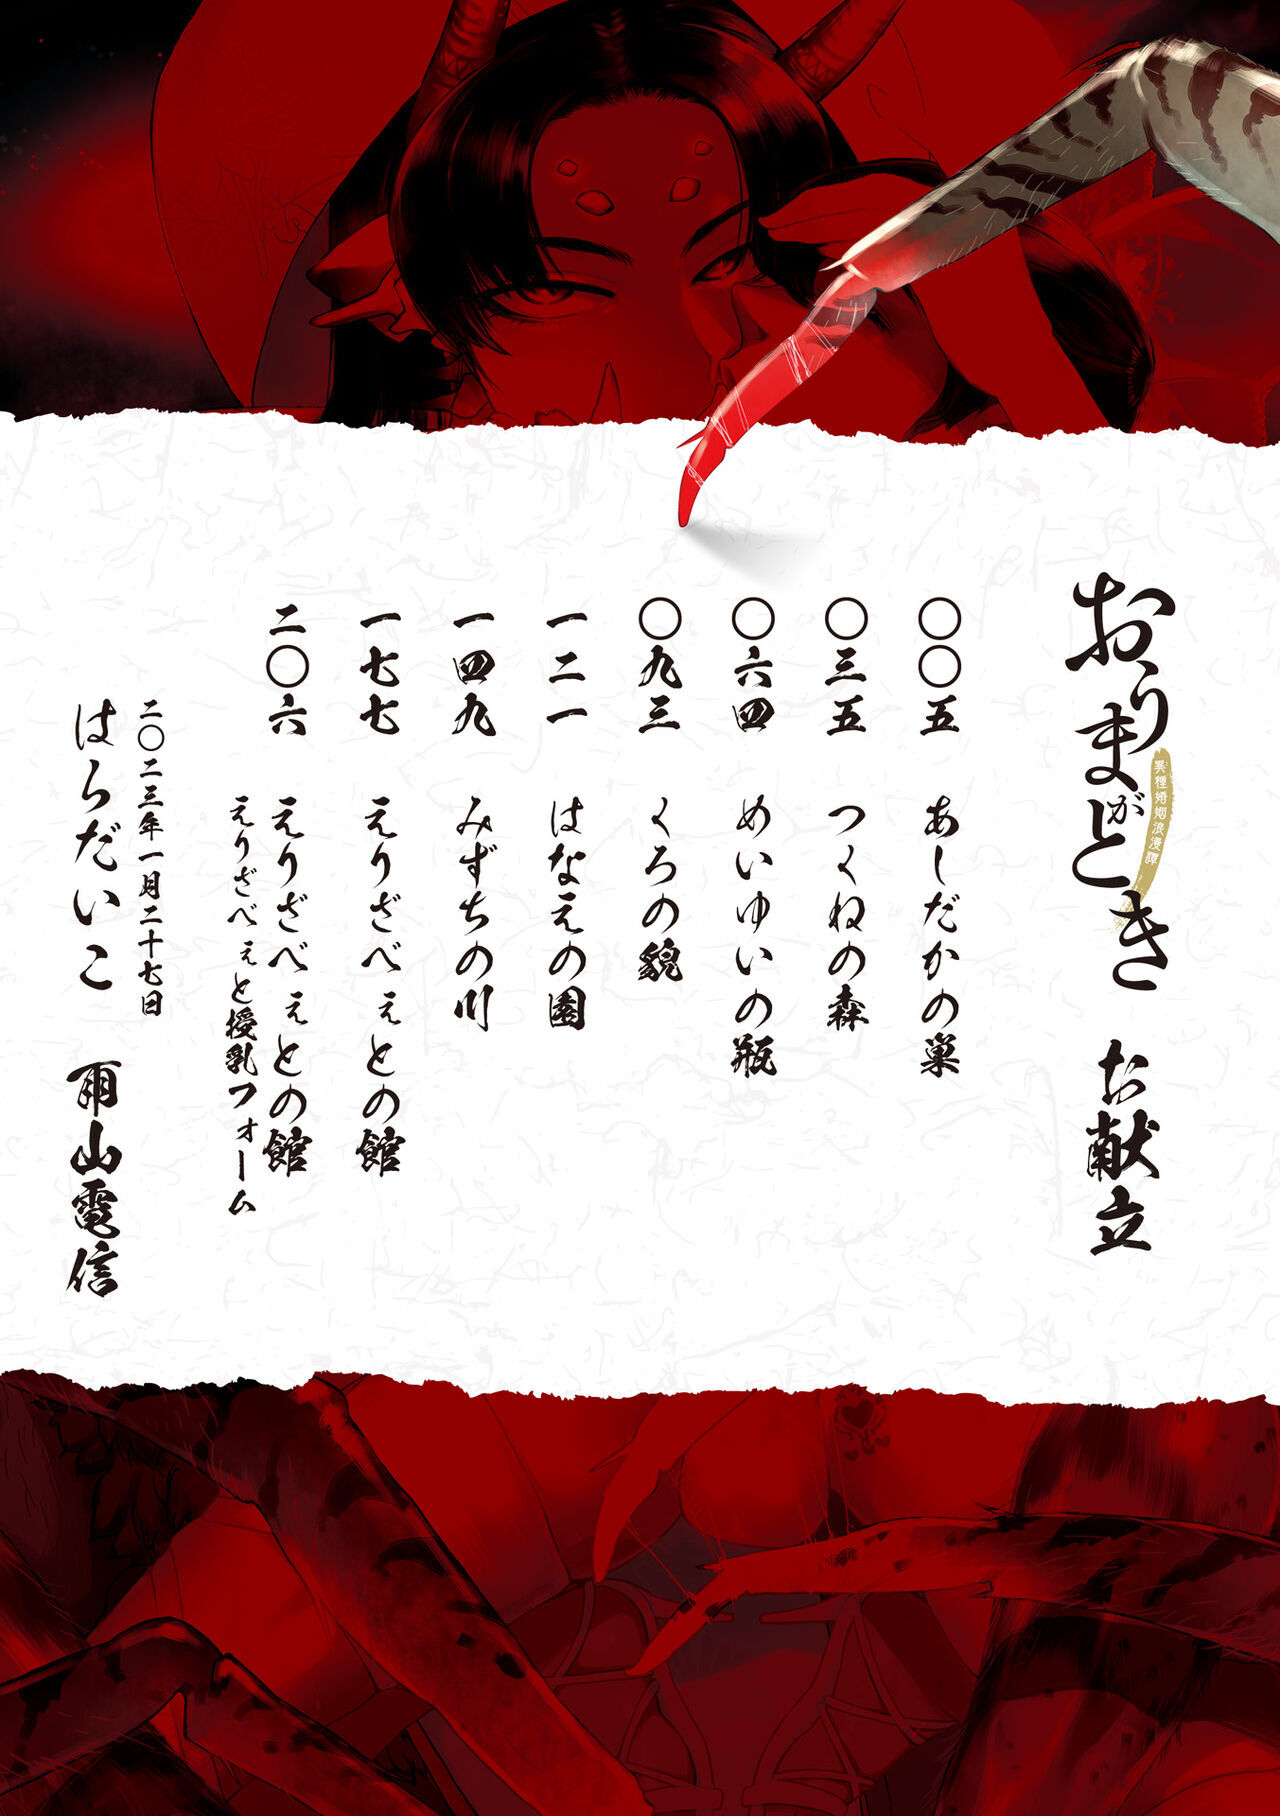 おりまがとき お献立
異種婚姻浪漫譚
〇〇五 あしだかの巣
〇三五 つくねの森
〇六四 めいゆいの瓶
〇九三 くろの貌
一二一 はなえの園
一四九 みずちの川
一七七 えりざべぇとの館
二〇六 えりざべぇとの館
えりざべぇと授乳フォーム
二〇二三年一月二十七日
はらだいこ 雨山電信